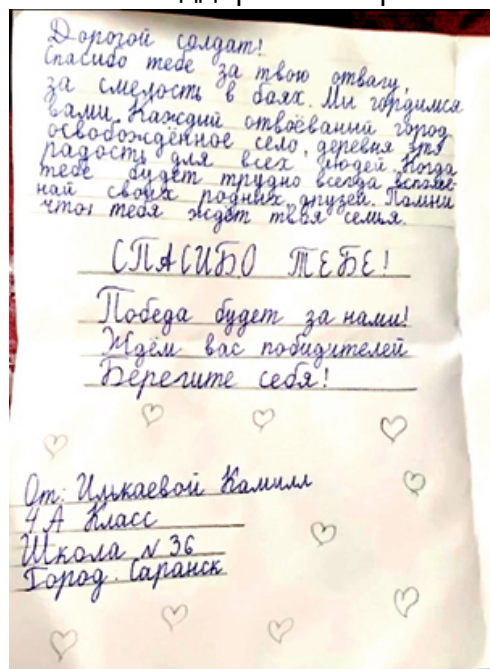 Дорогой солдат!
Спасибо тебе за твою отвагу,
за смелость в боях. Мы гордимся
вами. Каждий отвоёваный город
освобождённое село, деревня это
радость для всех людей. Когда
тебе будет трудно всегда вспоми-
най своих родных, друзей. Помни
что, тебя ждёт твоя семья.
СПАСИБО ТЕБЕ!
Победа будет за нами!
Ждём вас победителей
Берегите себя!
От: Илькаевой Камилл
4 А Класс
Школа № 36
Город. Саранск